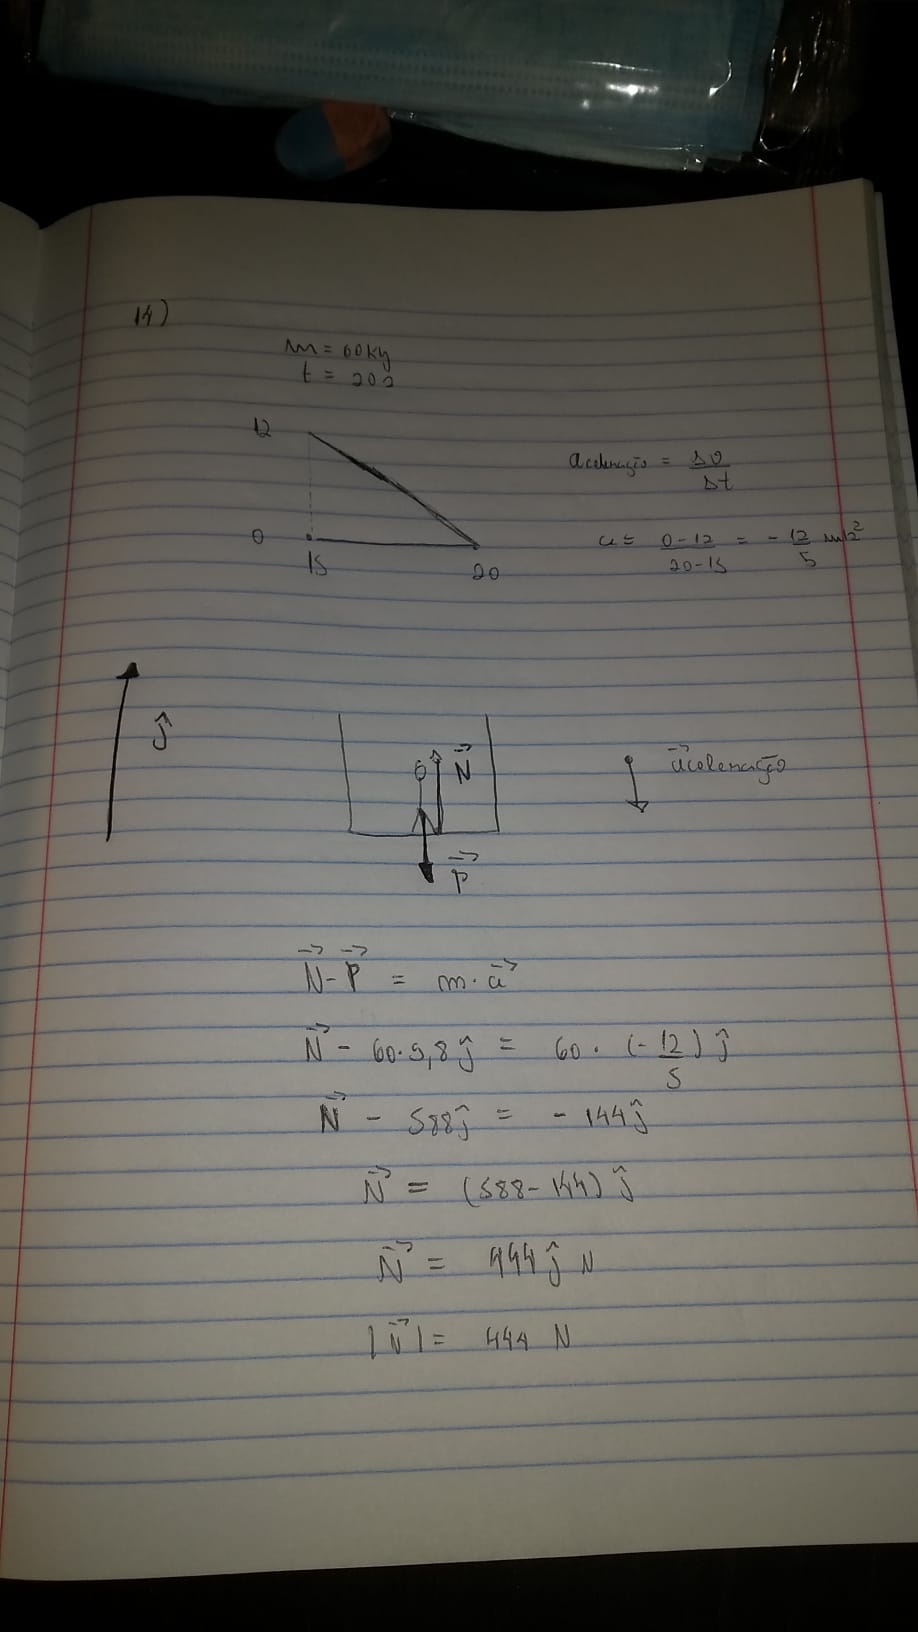 14)
m = 60kg
t = 20s
12
0
15
20
aceleração = Δv/Δt
a = (0-12)/(20-15) = -12/5 m/s²
ĵ
N⃗
P⃗
a⃗celeração
N⃗ - P⃗ = m · a⃗
N⃗ - 60·9,8 ĵ = 60 · (-12/5) ĵ
N⃗ - 588 ĵ = -144 ĵ
N⃗ = (588-144) ĵ
N⃗ = 444 ĵ N
|N⃗| = 444 N